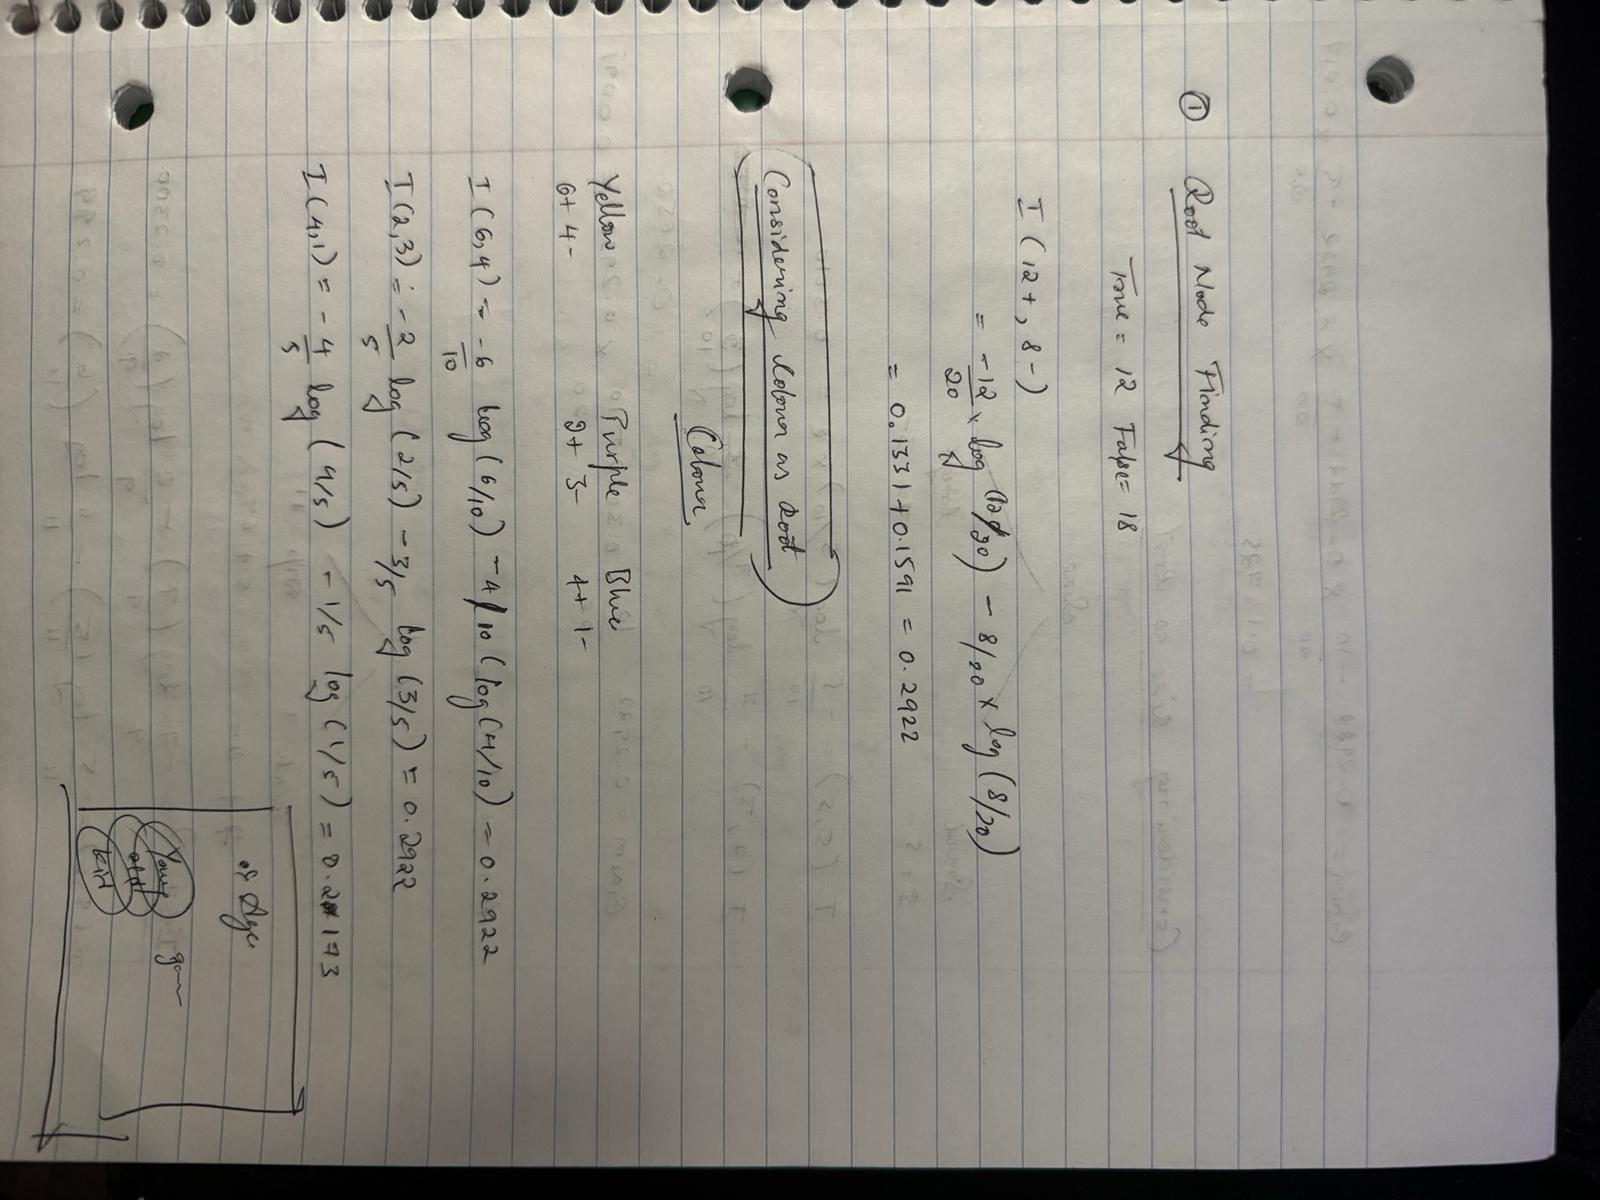 ① Root Node Finding
True = 12 False = 18
I (12+, 8-)
= -12/20 × log (12/20) - 8/20 × log (8/20)
= 0.1331 + 0.1591 = 0.2922
Considering Colour as Root
Colour
Yellow Purple Blue
6+ 4- 2+ 3- 4+ 1-
I (6,4) = -6/10 log (6/10) - 4/10 (log (4/10) = 0.2922
I (2,3) = -2/5 log (2/5) - 3/5 log (3/5) = 0.2922
I (4,1) = -4/5 log (4/5) - 1/5 log (1/5) = 0.2173
Age